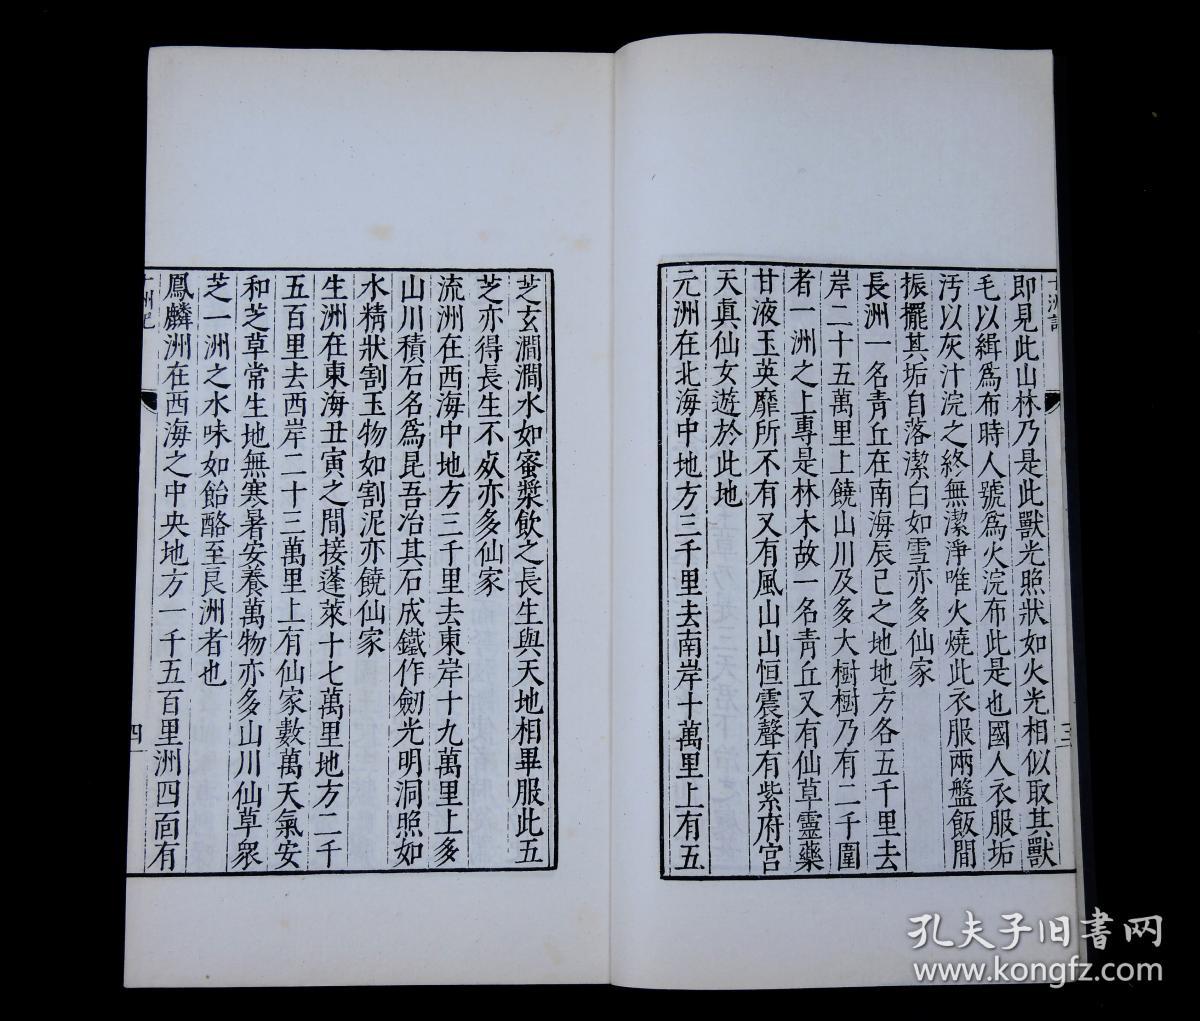 十洲記
三
即見此山林乃是此獸光照狀如火光相似取其獸
毛以緝爲布時人號爲火浣布此是也國人衣服垢
汚以灰汁浣之終無潔淨唯火燒此衣服兩盤飯間
振擺其垢自落潔白如雪亦多仙家
長洲一名青丘在南海辰巳之地地方各五千里去
岸二十五萬里上饒山川及多大樹樹乃有二千圍
者一洲之上專是林木故一名青丘又有仙草靈藥
甘液玉英靡所不有又有風山山恒震聲有紫府宮
天眞仙女遊於此地
元洲在北海中地方三千里去南岸十萬里上有五
芝玄澗澗水如蜜漿飲之長生與天地相畢服此五
芝亦得長生不死亦多仙家
流洲在西海中地方三千里去東岸十九萬里上多
山川積石名爲昆吾冶其石成鐵作劒光明洞照如
水精狀割玉物如割泥亦饒仙家
生洲在東海丑寅之間接蓬萊十七萬里地方二千
五百里去西岸二十三萬里上有仙家數萬天氣安
和芝草常生地無寒暑安養萬物亦多山川仙草衆
芝一洲之水味如飴酪至良洲者也
鳳麟洲在西海之中央地方一千五百里洲四面有
十洲記
四
孔夫子旧书网
www.kongfz.com